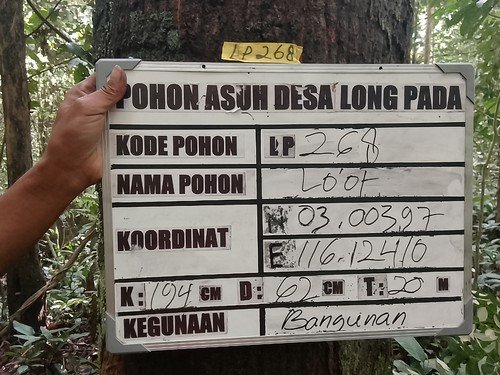 LP 268
POHON ASUH DESA LONG PADA
KODE POHON LP 268
NAMA POHON Lo'ot
KOORDINAT N 03.00397
E 116.12410
K: 194 CM D: 62 CM T: 20 M
KEGUNAAN Bangunan